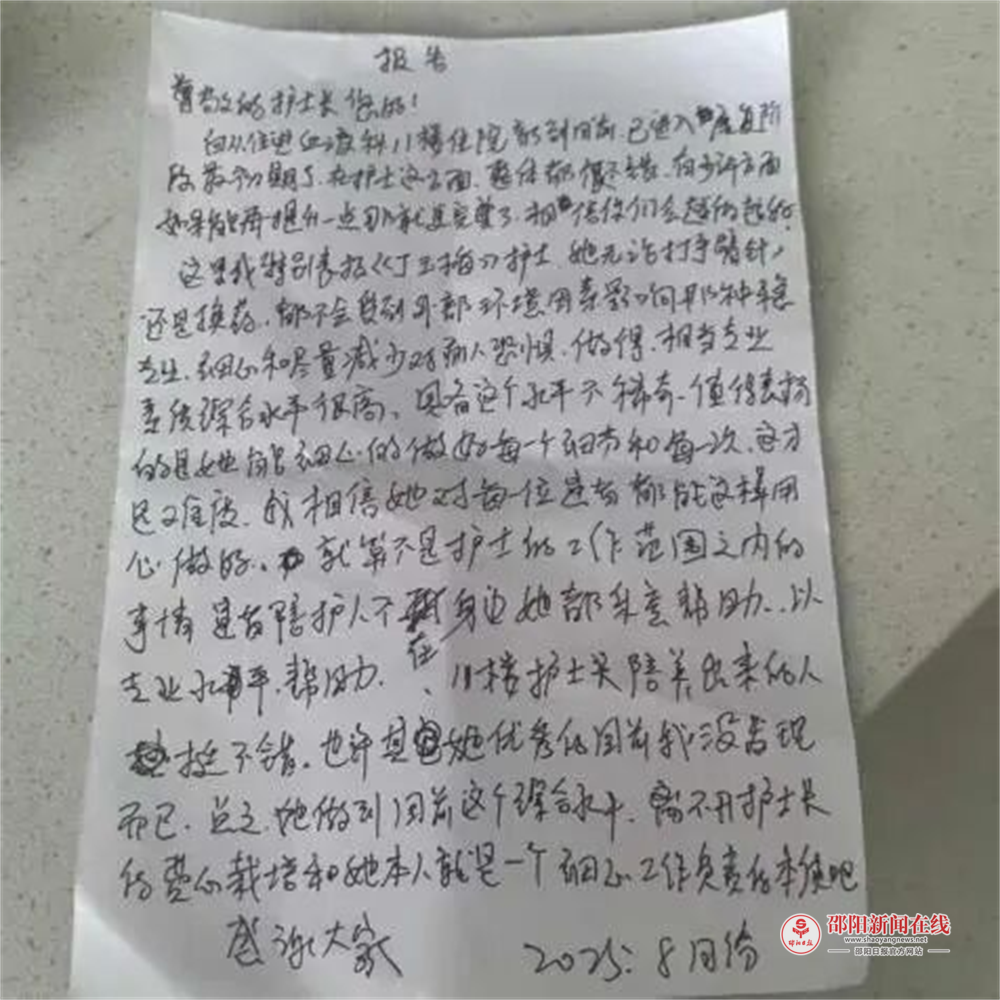 报告
尊敬的护士长您好!
自从住进血液科11楼住院部到目前,已进入康复阶
段最初期了,在护士这方面,整体都很不错,有少许方面
如果能再提升一点那就更完美了,相信你们会越做越好.
这里我特别表扬《丁玉梅》护士,她无论打手臂针,
还是换药,都不会受到外部环境因素影响,那种稳
专业,细心和尽量减少对病人恐惧,做得,相当专业
素质综合水平很高,具备这个水平不稀奇,值得表扬
的是她能细心的做好每一个细节和每一次,这才
是难度,我相信她对每一位患者都能这样用
心做好,就算不是护士的工作范围之内的
事情患者陪护人不在身边她都乐意帮助,以
专业水平,帮助. 11楼护士长陪养出来的人
挺不错,也许其她优秀的目前我没发现
而已,总之,她做到目前这个综合水平,离不开护士长
的费心栽培和她本人就是一个细心工作负责的本质吧
感谢大家 2025.8月份
邵阳新闻在线
邵阳日报
www.shaoyangnews.net
邵阳日报官方网站